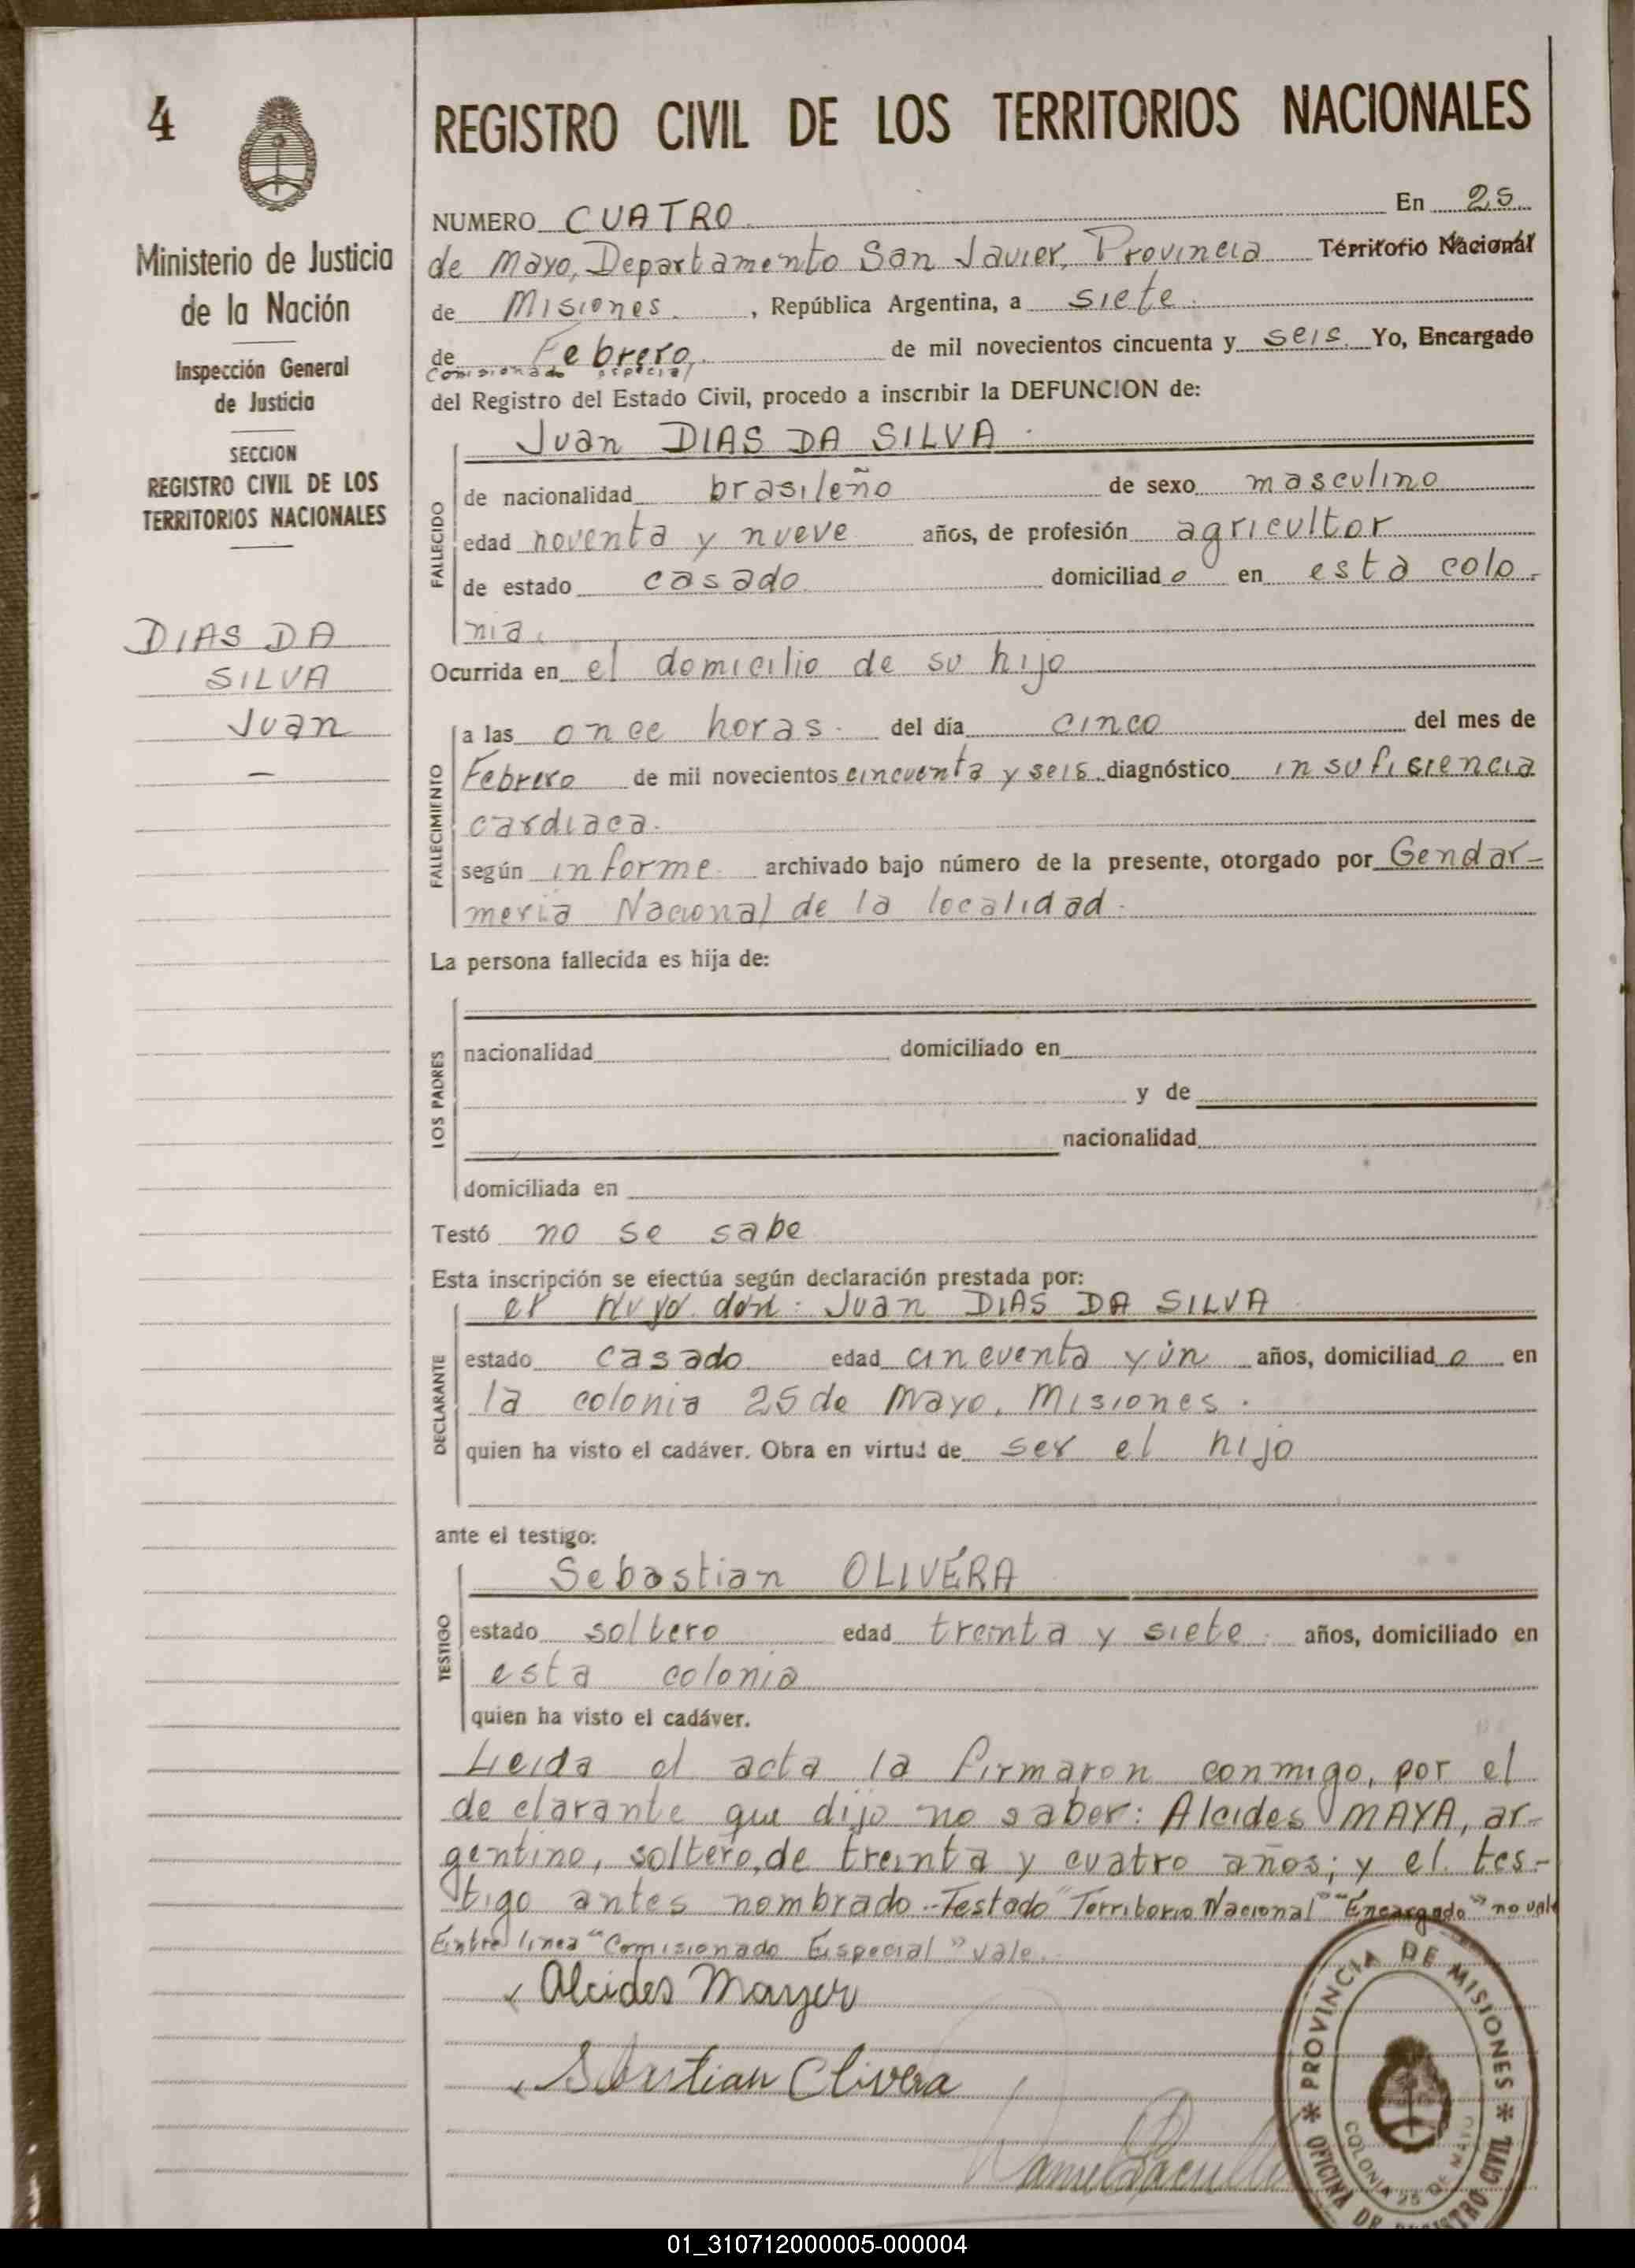 4
Ministerio de Justicia
de la Nación
Inspección General
de Justicia
SECCION
REGISTRO CIVIL DE LOS
TERRITORIOS NACIONALES
DIAS DA
SILVA
Juan
REGISTRO CIVIL DE LOS TERRITORIOS NACIONALES
NUMERO CUATRO En 25
de Mayo, Departamento San Javier, Provincia Territorio Nacional
de Misiones. , República Argentina, a siete
de Febrero, de mil novecientos cincuenta y seis. Yo, Encargado
Comisionado especial
del Registro del Estado Civil, procedo a inscribir la DEFUNCION de:
Juan DIAS DA SILVA
FALLECIDO
de nacionalidad brasileño de sexo masculino
edad noventa y nueve años, de profesión agricultor
de estado casado domiciliado en esta colo-
nia.
Ocurrida en el domicilio de su hijo
FALLECIMIENTO
a las once horas. del día cinco del mes de
Febrero de mil novecientos cincuenta y seis diagnóstico insufisiencia
cardiaca.
según informe archivado bajo número de la presente, otorgado por Gendar-
meria Nacional de la localidad.
La persona fallecida es hija de:
LOS PADRES
nacionalidad domiciliado en
y de
nacionalidad
domiciliada en
Testó no se sabe
Esta inscripción se efectúa según declaración prestada por:
el don: Juan DIAS DA SILVA
DECLARANTE
estado casado edad cincuenta y ún años, domiciliado en
la colonia 25 de Mayo, Misiones.
quien ha visto el cadáver. Obra en virtud de ser el hijo
ante el testigo:
Sebastian OLIVÉRA
TESTIGO
estado soltero edad treinta y siete años, domiciliado en
esta colonia
quien ha visto el cadáver.
Leida el acta la firmaron conmigo, por el
declarante que dijo no saber: Alcides MAYA, ar-
gentino, soltero, de treinta y cuatro años; y el tes-
tigo antes nombrado.-Testado "Territorio Nacional" "Encargado" no vale
Entre linea "Comisionado Especial" vale.
Alcides Mayer
Sebastian Olivera
* PROVINCIA DE MISIONES *
OFICINA DE REGISTRO CIVIL
COLONIA 25 DE MAYO
01_310712000005-000004